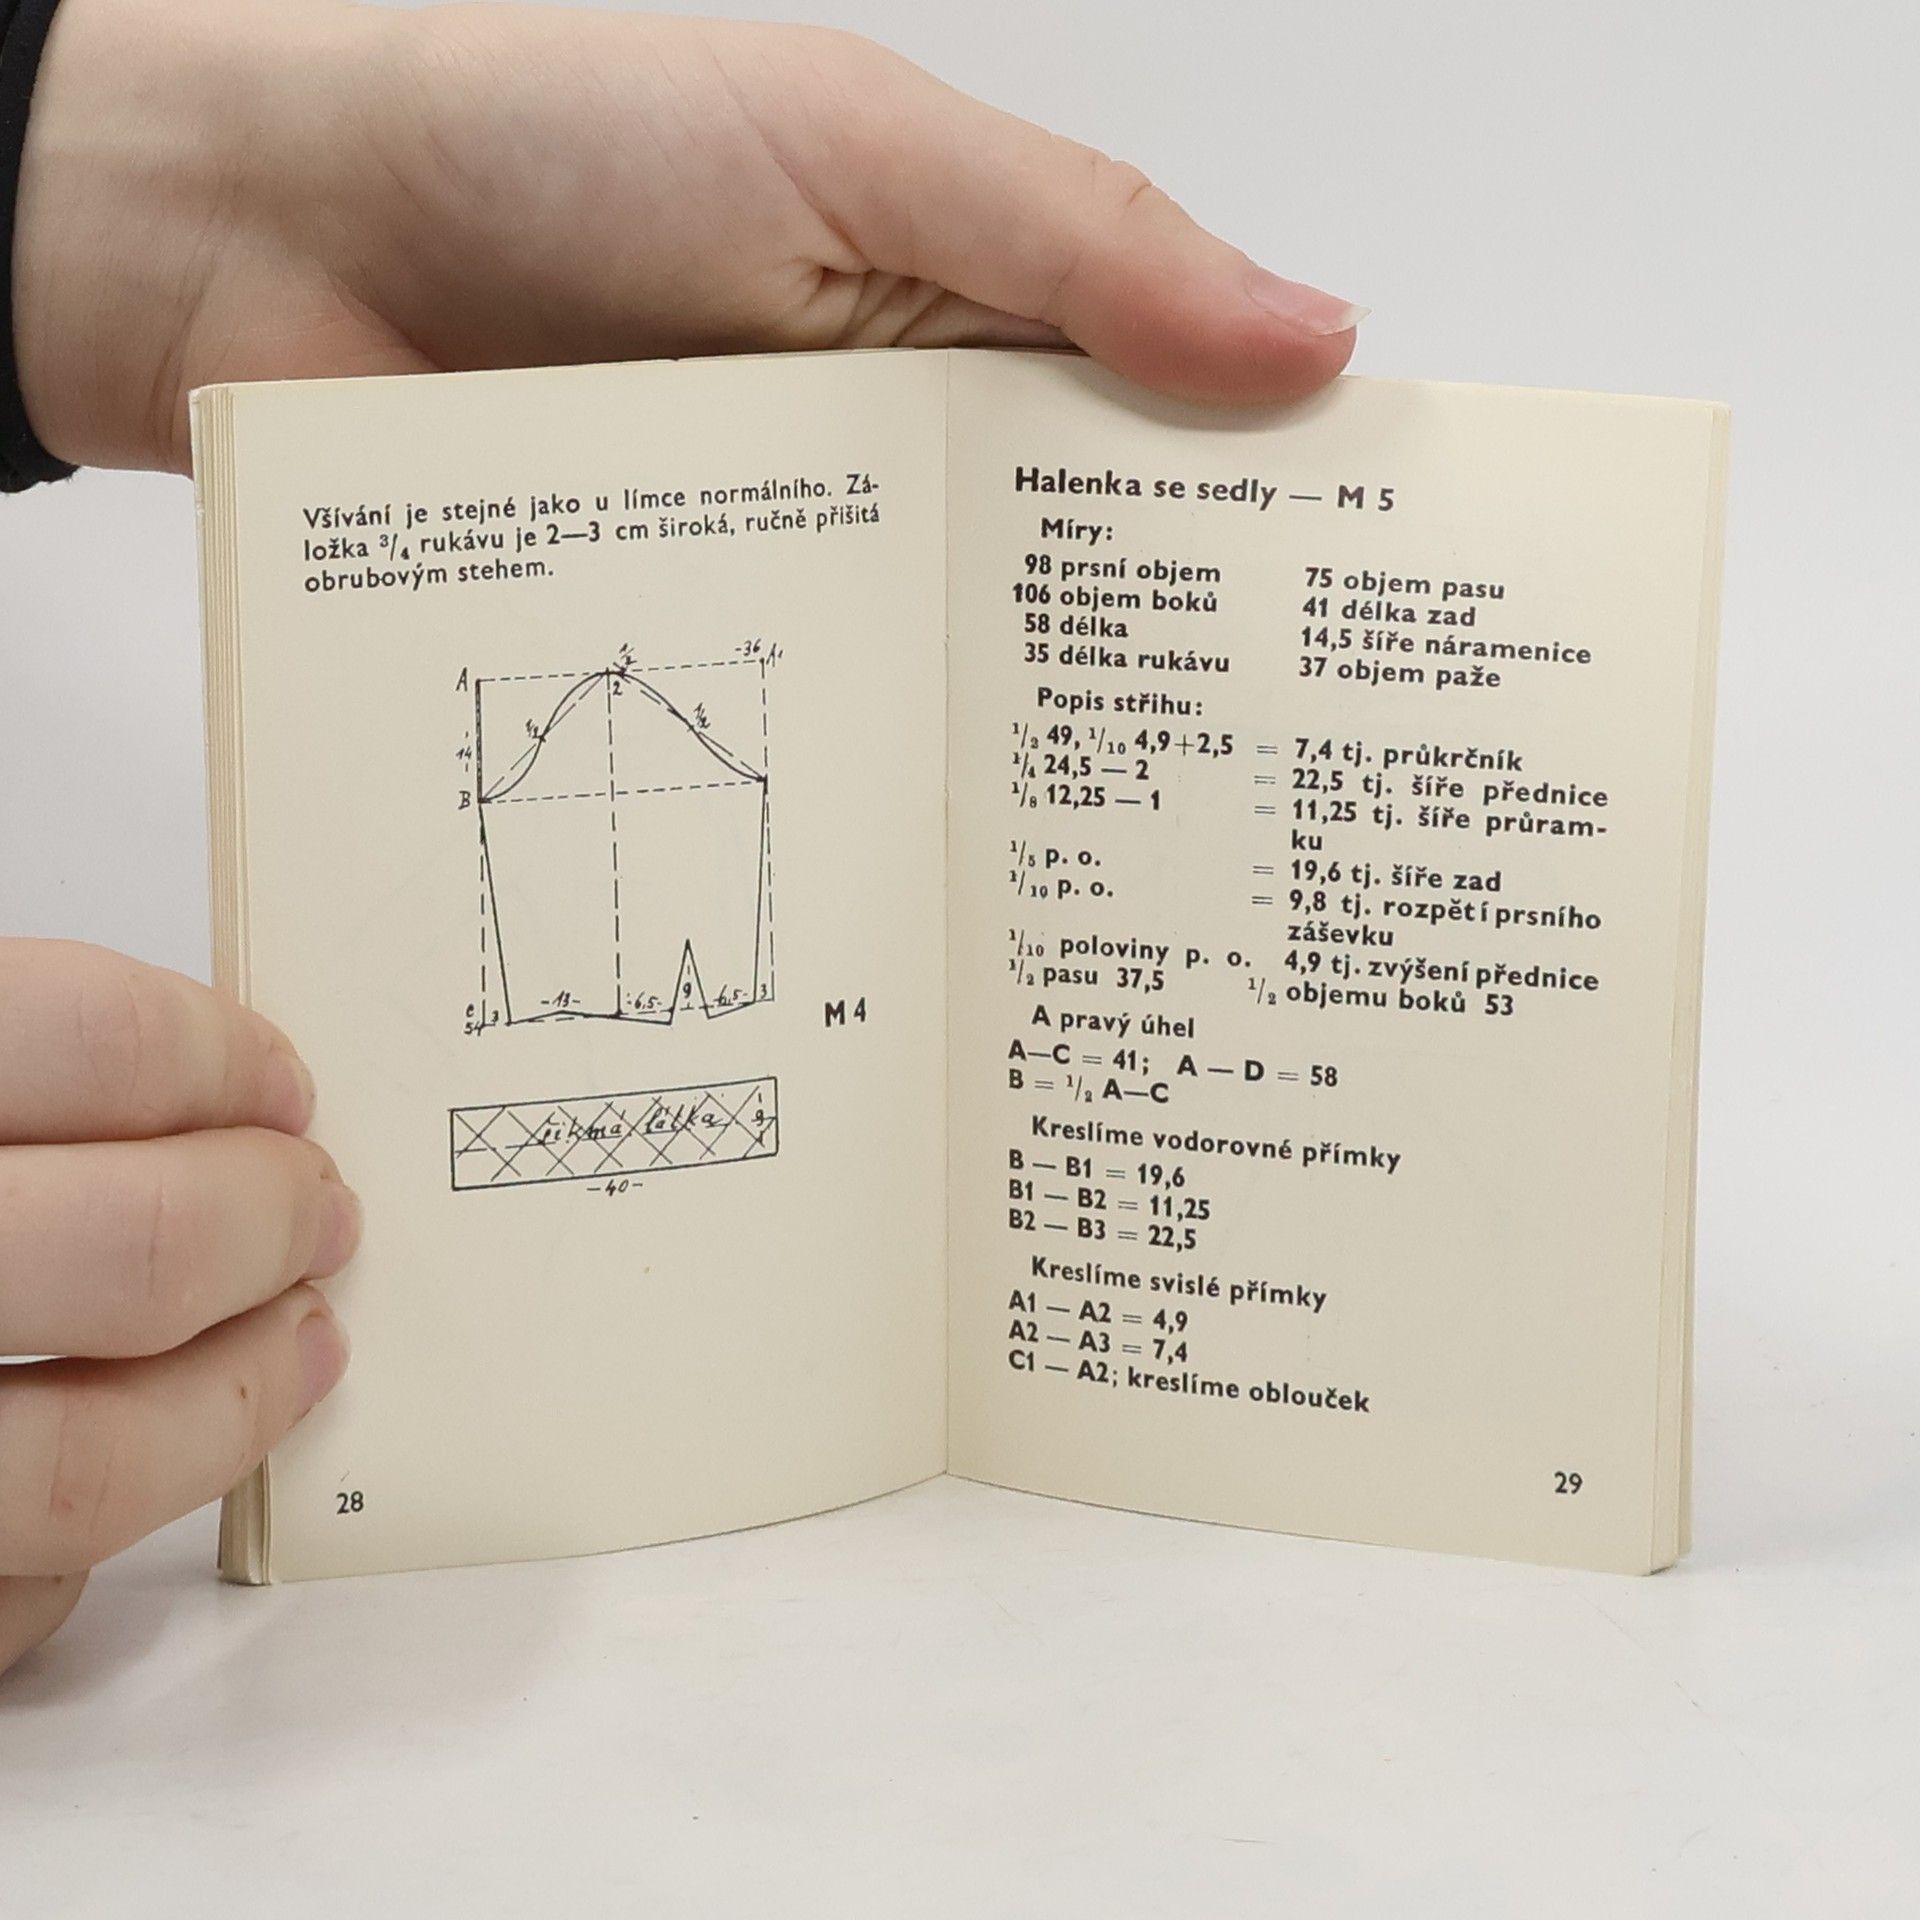 Všívání je stejné jako u límce normálního. Zá-
ložka ³/₄ rukávu je 2—3 cm široká, ručně přišitá
obrubovým stehem.
A
½
2
-36
A₁
½
½
14
B
-13-
-6,5-
9
-6,5-
3
e
54
3
M 4
šikmá látka
9
-40-
28
Halenka se sedly — M 5
Míry:
98 prsní objem 75 objem pasu
106 objem boků 41 délka zad
58 délka 14,5 šíře náramenice
35 délka rukávu 37 objem paže
Popis střihu:
¹/₂ 49, ¹/₁₀ 4,9+2,5 = 7,4 tj. průkrčník
¹/₄ 24,5 — 2 = 22,5 tj. šíře přednice
¹/₈ 12,25 — 1 = 11,25 tj. šíře průram-
ku
¹/₅ p. o. = 19,6 tj. šíře zad
¹/₁₀ p. o. = 9,8 tj. rozpětí prsního
záševku
¹/₁₀ poloviny p. o. 4,9 tj. zvýšení přednice
¹/₂ pasu 37,5 ¹/₂ objemu boků 53
A pravý úhel
A—C = 41; A — D = 58
B = ¹/₂ A—C
Kreslíme vodorovné přímky
B — B1 = 19,6
B1 — B2 = 11,25
B2 — B3 = 22,5
Kreslíme svislé přímky
A1 — A2 = 4,9
A2 — A3 = 7,4
C1 — A2; kreslíme oblouček
29